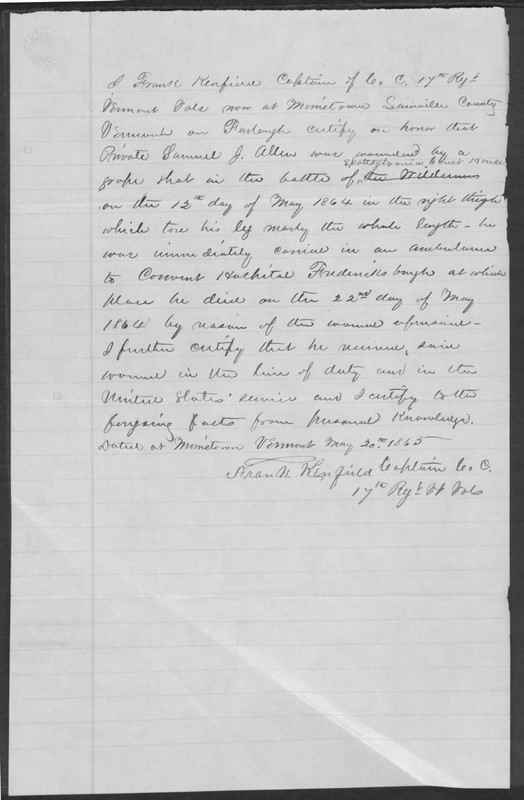 I Frank Kenfield Captain of Co. C. 17th Regt
Vermont Vols now at Morristown Lamoille County
Vermont on Furlough certify on honor that
Private Samuel J. Allen was wounded by a
Spottsylvania Court House
grape shot in the battle of the Wilderness
on the 12th day of May 1864 in the right thigh
which tore his leg nearly the whole length – he
was immediately carried in an ambulance
to Convent Hospital Fredericksburgh at which
place he died on the 22nd day of May
1864 by reason of the wound aforesaid –
I further certify that he received said
wound in the line of duty and in the
United States' service and I certify to the
foregoing facts from personal Knowledge.
Dated at Morristown Vermont May 20th 1865
Frank Kenfield Captain Co. C.
17th Regt Vt Vols